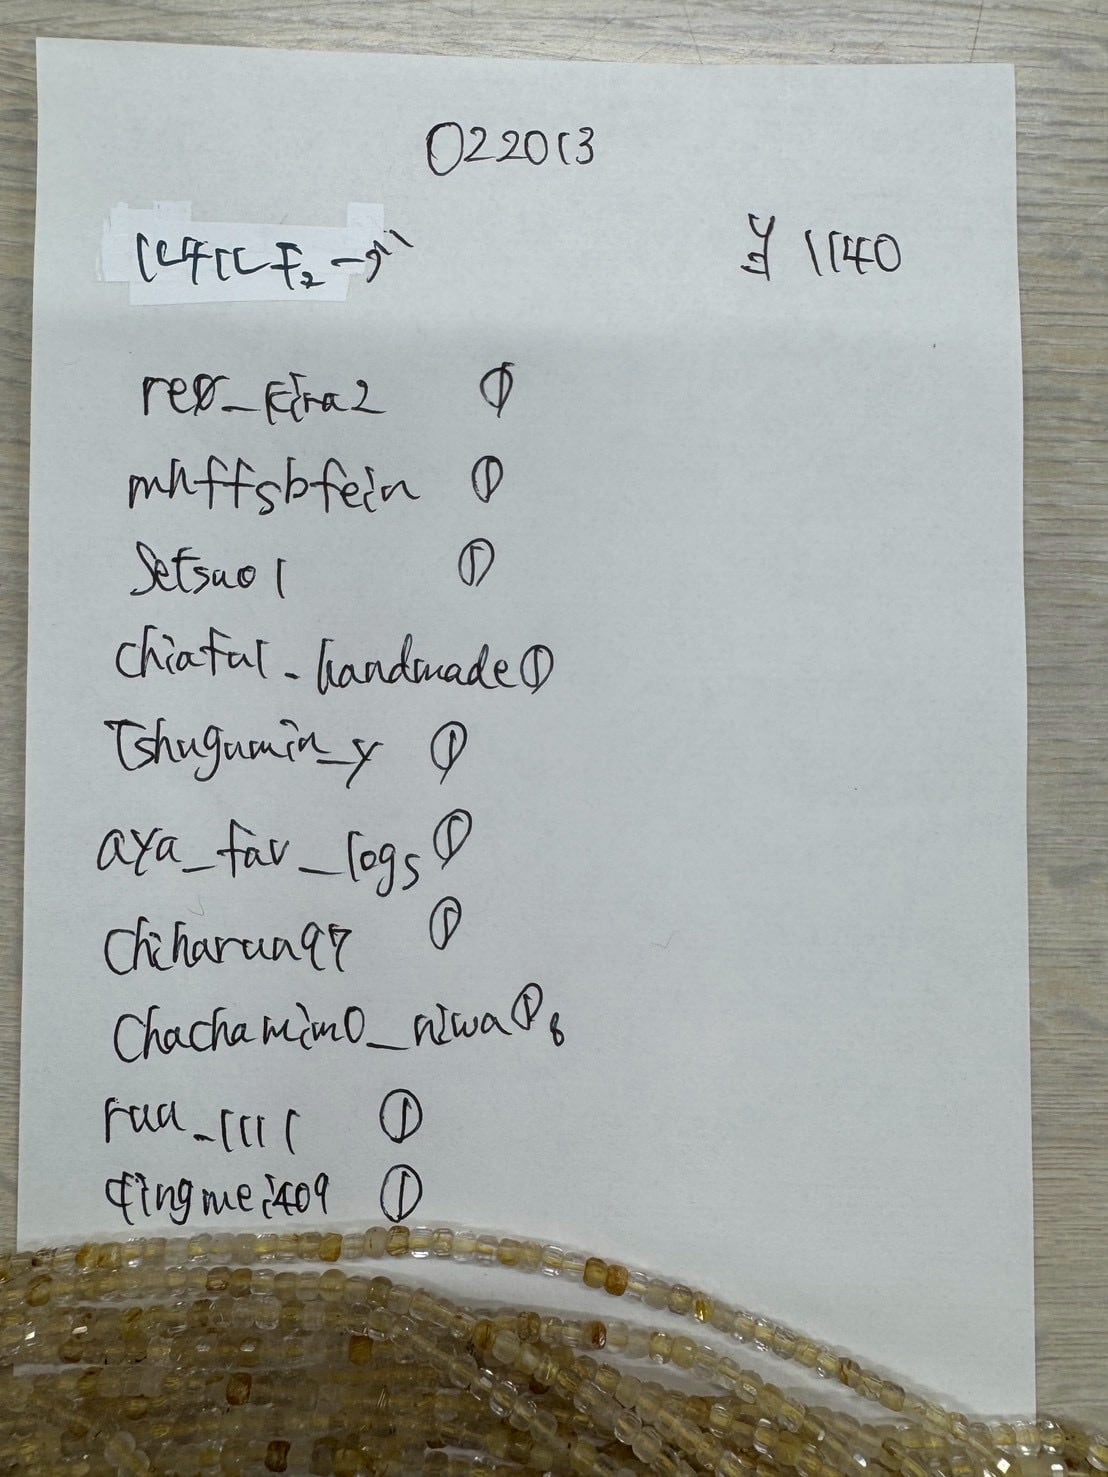 022013
¥1140
reo_kira2 ①
mhffsbfein ①
Setsuo1 ①
chiaful_handmade ①
Tshugumin_y ①
aya_fav_logs ①
Chiharun97 ①
Chachamimo_niwa ① 8
raa_1111 ①
qingmei409 ①